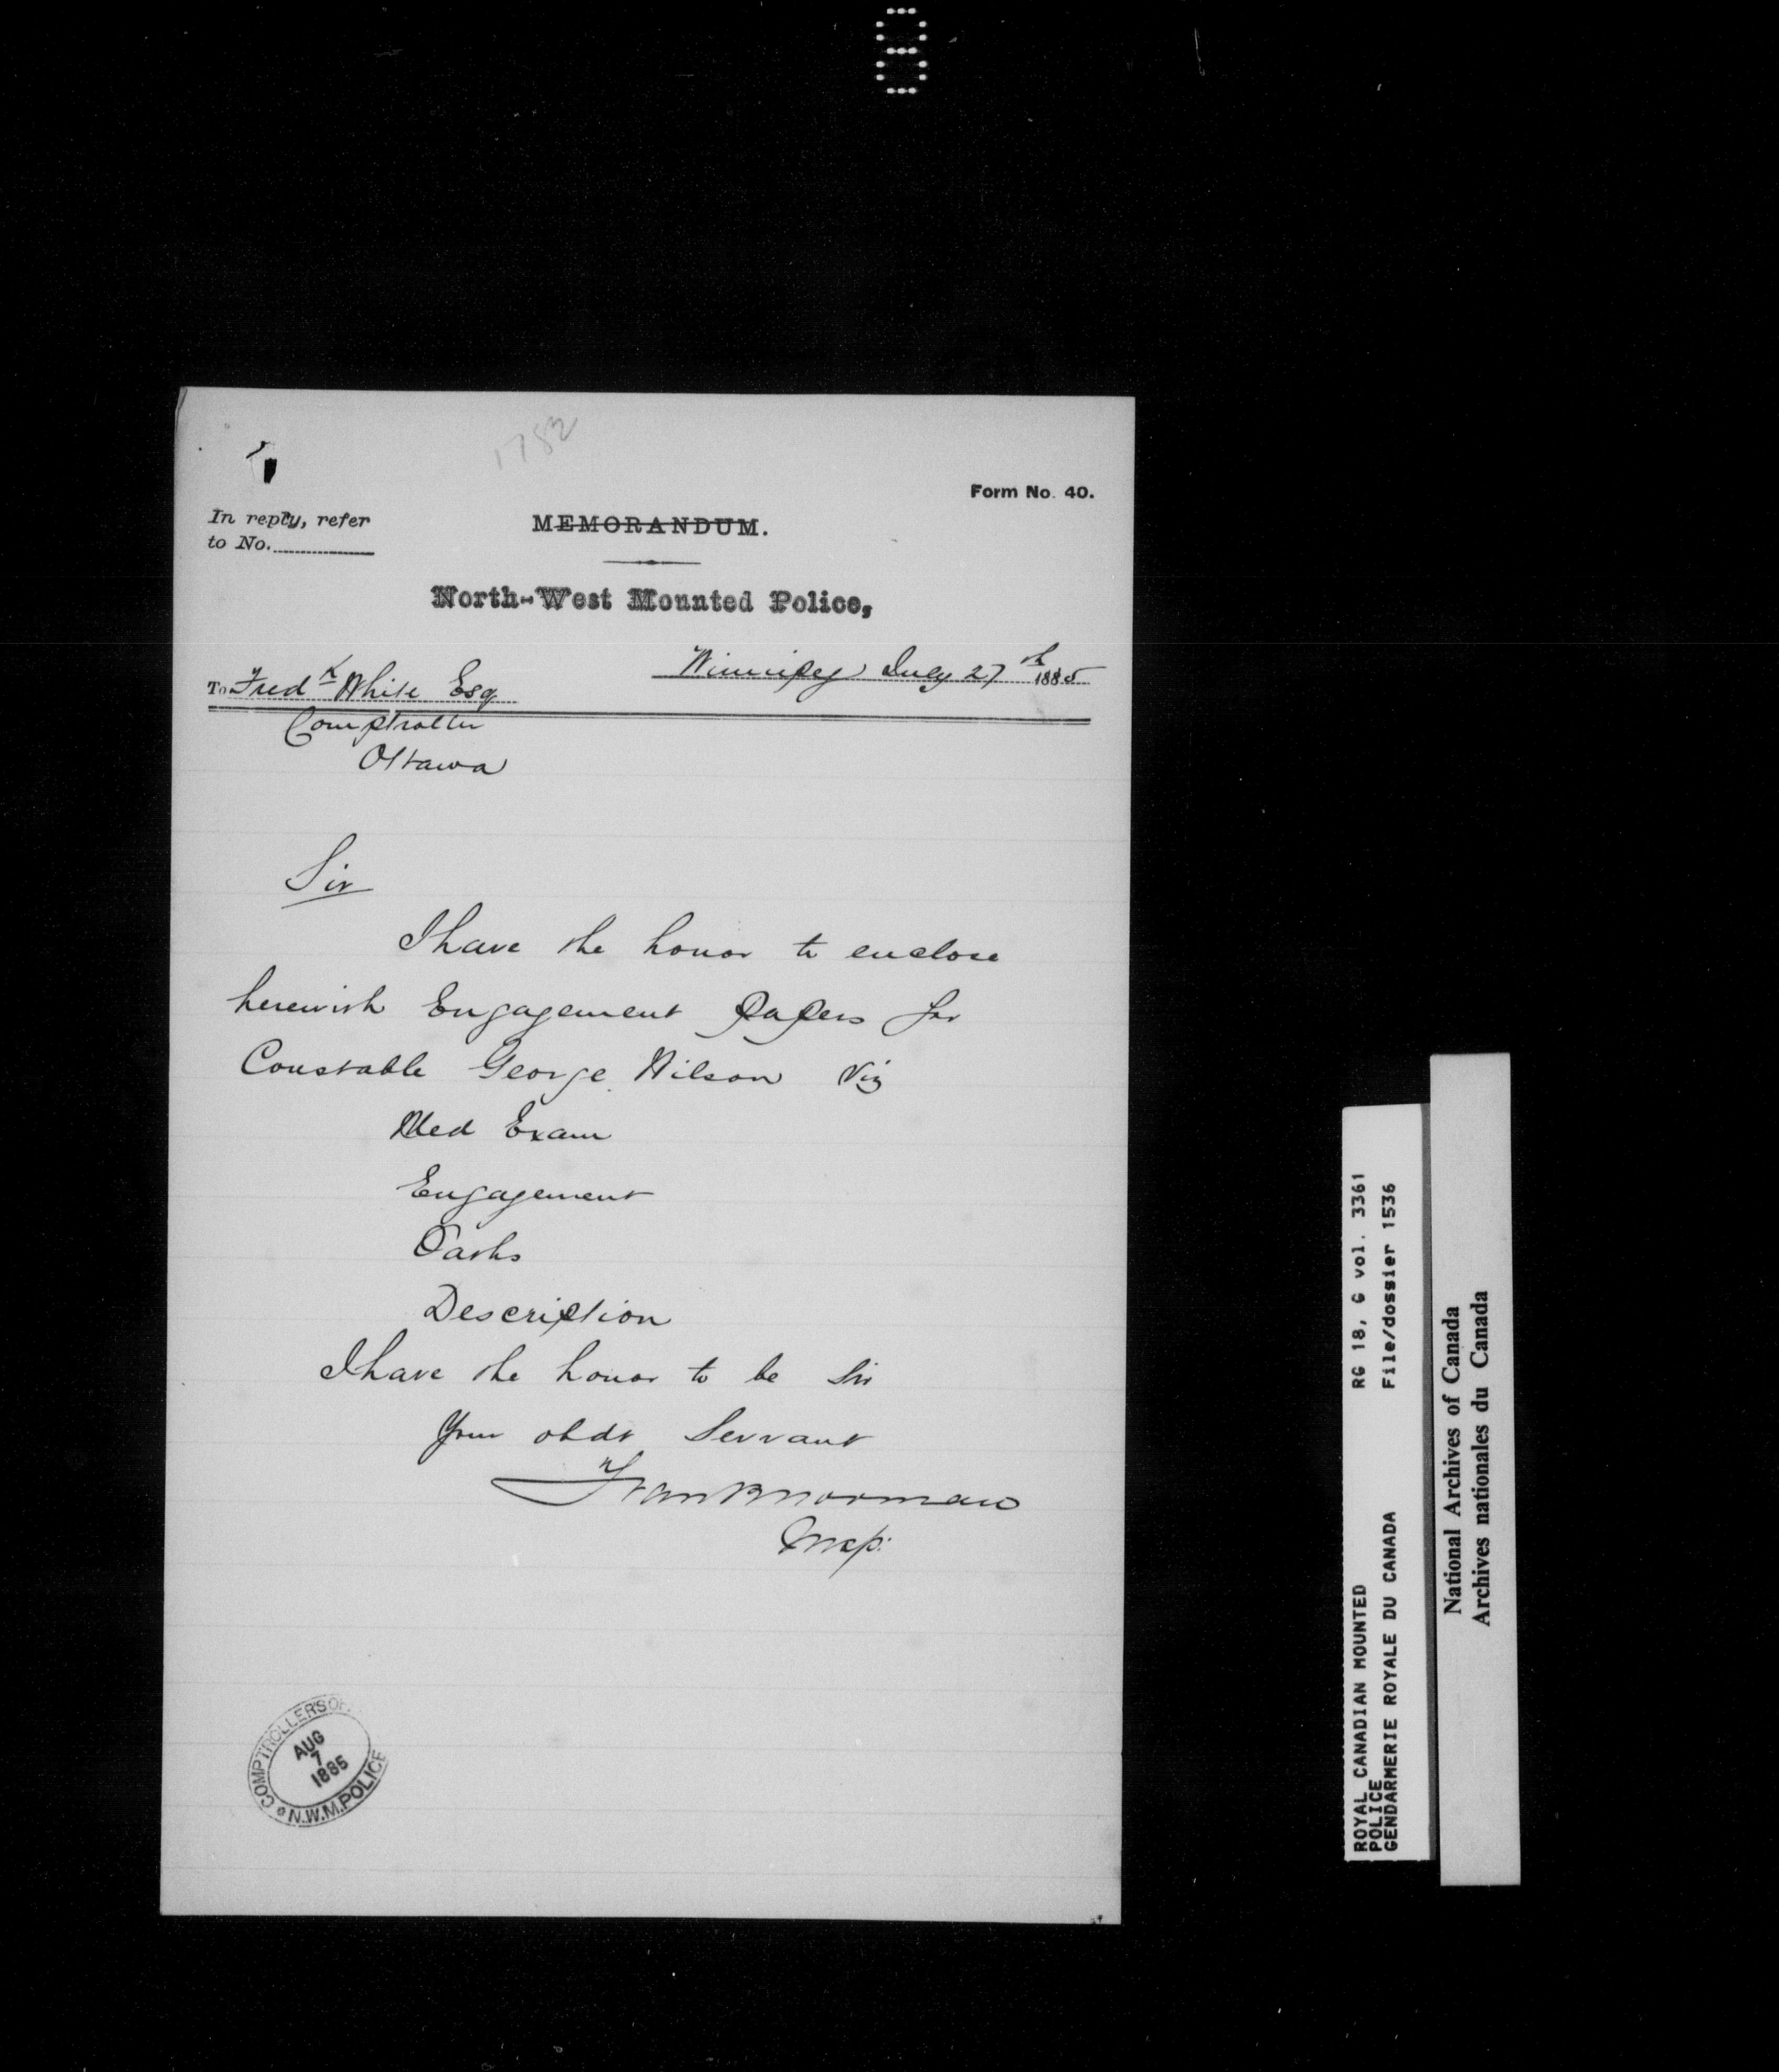 1782
Form No. 40.
In reply, refer
to No.
MEMORANDUM.
North-West Mounted Police,
Winnipeg July 27th 1885
To Fredk White Esq
Comptroller
Ottawa
Sir
I have the honor to enclose
herewith Engagement Papers for
Constable George Wilson Viz
Med Exam
Engagement
Oaths
Description
I have the honor to be Sir
Your obdt Servant
Frank Norman
Insp.
COMPTROLLER'S OF
AUG
7
1885
N.W.M. POLICE
ROYAL CANADIAN MOUNTED RG 18, G vol. 3361
POLICE
GENDARMERIE ROYALE DU CANADA File/dossier 1536
National Archives of Canada
Archives nationales du Canada